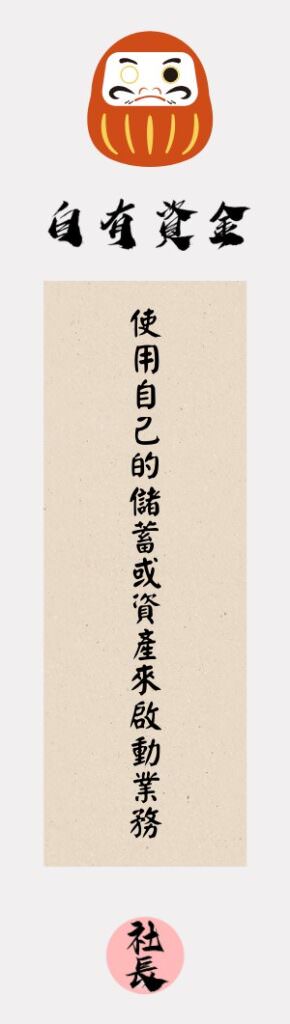 自有資金
使用自己的儲蓄或資產來啟動業務
社長